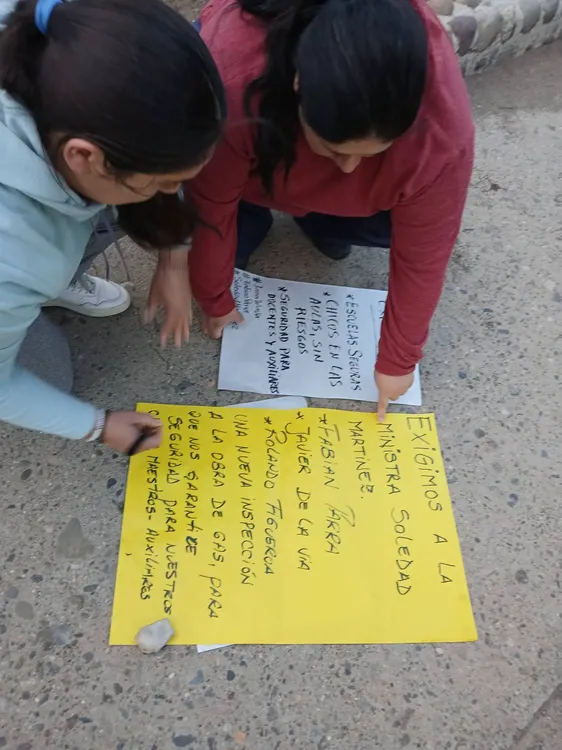 EXIGIMOS A LA
MINISTRA SOLEDAD
MARTINEZ.
* FABIAN PARRA
* JAVIER DE LA VIA
* ROLANDO FIGUEROA
UNA NUEVA INSPECCIÓN
A LA OBRA DE GAS, PARA
QUE NOS GARANTICE
SEGURIDAD PARA NUESTROS
MAESTROS - AUXILIARES
* ESCUELAS SEGURAS
* CHICOS EN LAS
AULAS, SIN
RIESGOS
* SEGURIDAD PARA
DOCENTES Y AUXILIARES